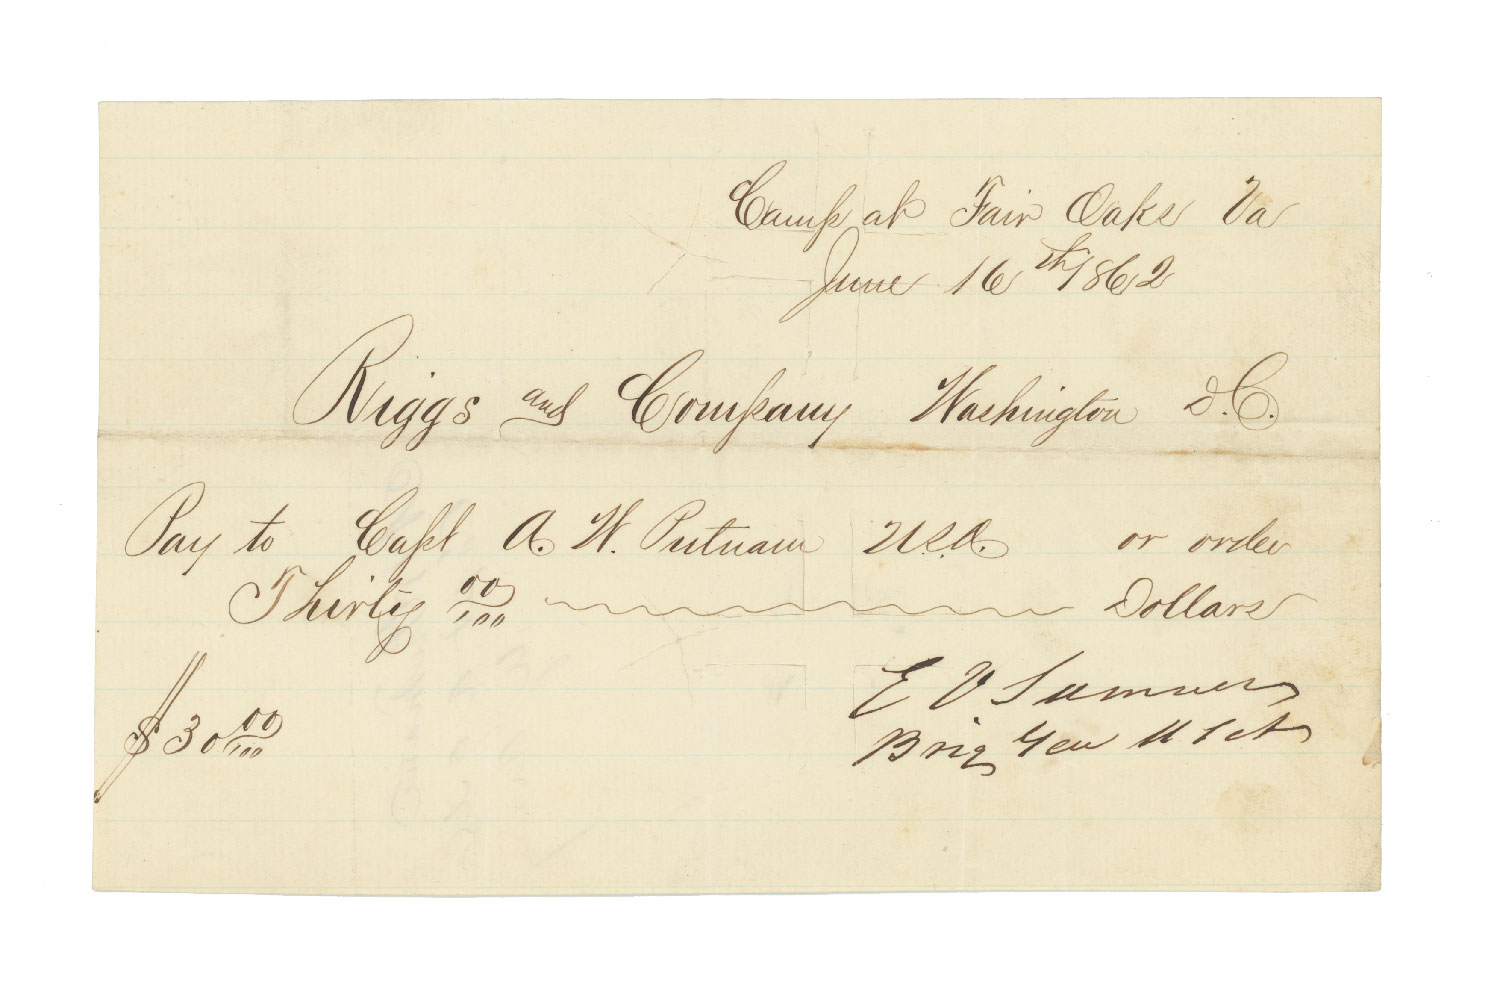 Camp at Fair Oaks Va
June 16th 1862
Riggs and Company Washington D.C.
Pay to Capt A. W. Putnam U.S.A. or order
Thirty 00/100 Dollars
E V Sumner
$30 00/100
Brig Gen U S A